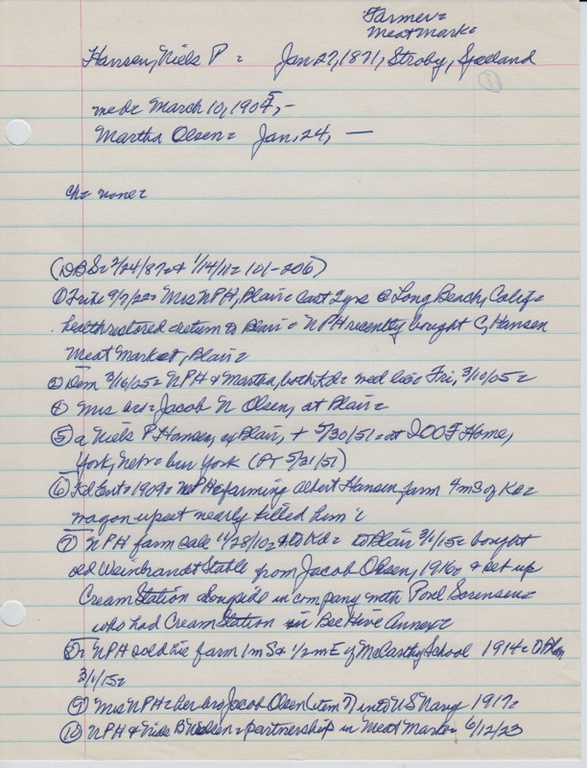 Farmer=
Meat Mark=
Hansen, Niels P = Jan 27, 1871, Stroby, Sjelland
1
med= March 10, 1905, -
Martha Olsen= Jan, 24, —
Ch= none=
(DBS= 2/24/87= & 1/14/11= 101-206)
① 9/7/22= Mrs NPH, Blair= last 2 yrs @ Long Beach, Calif=
health restored & return to Blair = NPH recently bought C, Hansen
Meat Market, Blair=
② Dem 3/16/05= NPH & Martha, both Kd= med lic= Fri, 3/10/05=
④ Mrs bro= Jacob N Olsen, at Blair=
⑤ a Niels P Hansen, ex Blair, + 5/30/51= at IOOF Home,
York, Nebr= bur York (PT 5/31/51)
⑥ Kd Ent= 1909= NPH= farming Albert Hansen farm 4mS of Kd=
wagon upset nearly killed him=
⑦ NPH farm sale 11/28/10= & to Kd= to Blair 3/1/15= bought
old Weinbrandt Stable from Jacob Olsen, 1916= & set up
Cream Station alongside in company with Povl Sorensen=
who had Cream Station in Bee Hive Annex=
⑧= NPH sold his farm 1mS & 1/2mE of McCarthy School 1914=
3/1/15=
⑨ Mrs NPH= her bro Jacob Olsen (item 7) into US Navy 1917=
⑩ NPH & Niels B Nielsen= partnership in Meat Mark= 6/12/23